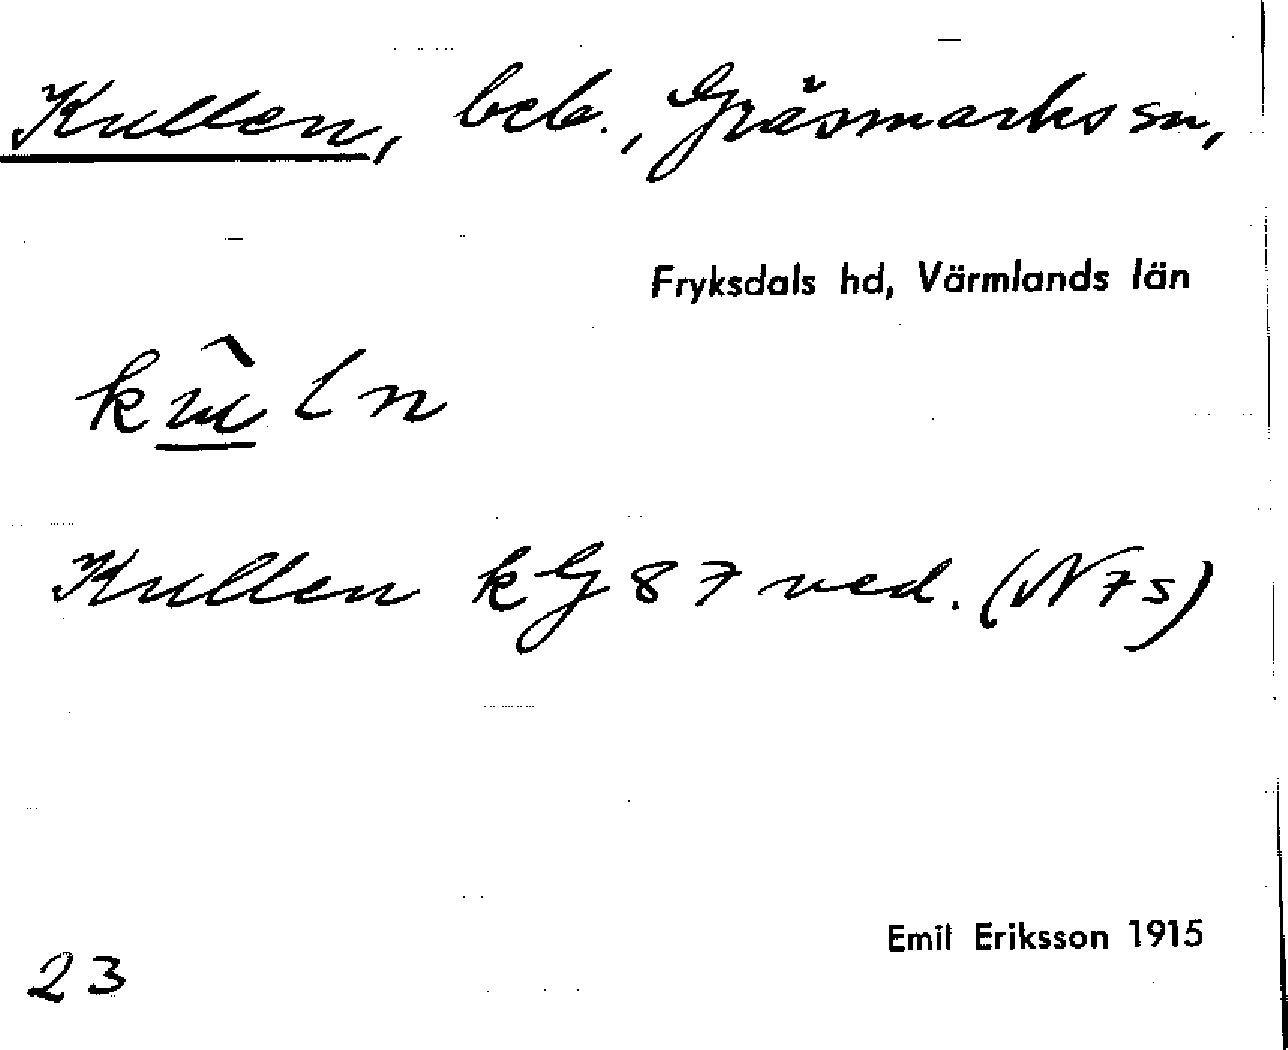 Kullen, beb., Gräsmarks sn,
Fryksdals hd, Värmlands län
Kullen kG 87 ved. (N7s)
Emil Eriksson 1915
23